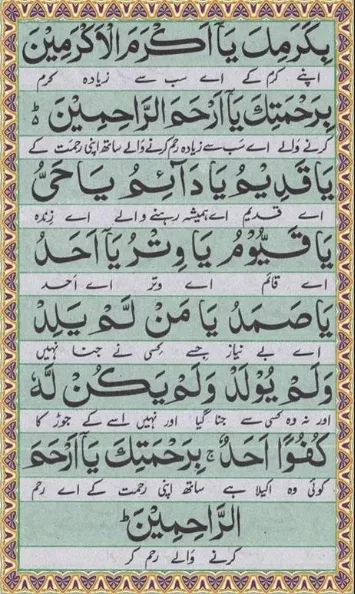 بِكَرَمِكَ يَآ اَكْرَمَ الْاَكْرَمِيْنَ
اپنے کرم کے اے سب سے زیادہ کرم
بِرَحْمَتِكَ يَآ اَرْحَمَ الرَّاحِمِيْنَ ؕ
کرنے والے اے سب سے زیادہ رحم کرنے والے ساتھ اپنی رحمت کے
يَا قَدِيْمُ يَا دَآئِمُ يَا حَىُّ
اے قدیم اے ہمیشہ رہنے والے اے زندہ
يَا قَيُّوْمُ يَا وِتْرُ يَآ اَحَدُ
اے قائم اے وتر اے احد
يَا صَمَدُ يَا مَنْ لَّمْ يَلِدْ
اے بے نیاز جسے کسی نے جنا نہیں
وَلَمْ يُوْلَدْ وَلَمْ يَكُنْ لَّهٗ
اور نہ وہ کسی سے جنا گیا اور نہیں اسکے جوڑ کا
كُفُوًا اَحَدٌ ج بِرَحْمَتِكَ يَآ اَرْحَمَ
کوئی وہ اکیلا ہے ساتھ اپنی رحمت کے اے رحم
الرَّاحِمِيْنَ ؕ
کرنے والے رحم کر